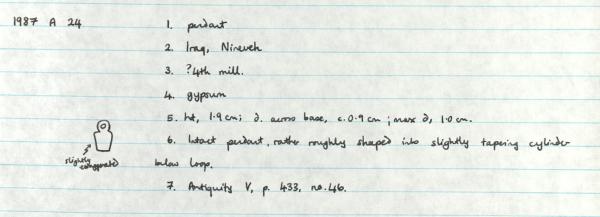 1987 A 24
1. pendant
2. Iraq, Nineveh
3. ?4th mill.
4. gypsum
5. ht, 1.9 cm; d. across base, c. 0.9 cm; max d, 1.0 cm.
6. Intact pendant, rather roughly shaped into slightly tapering cylinder
below loop.
slightly
7. Antiquity V, p. 433, no. 46.